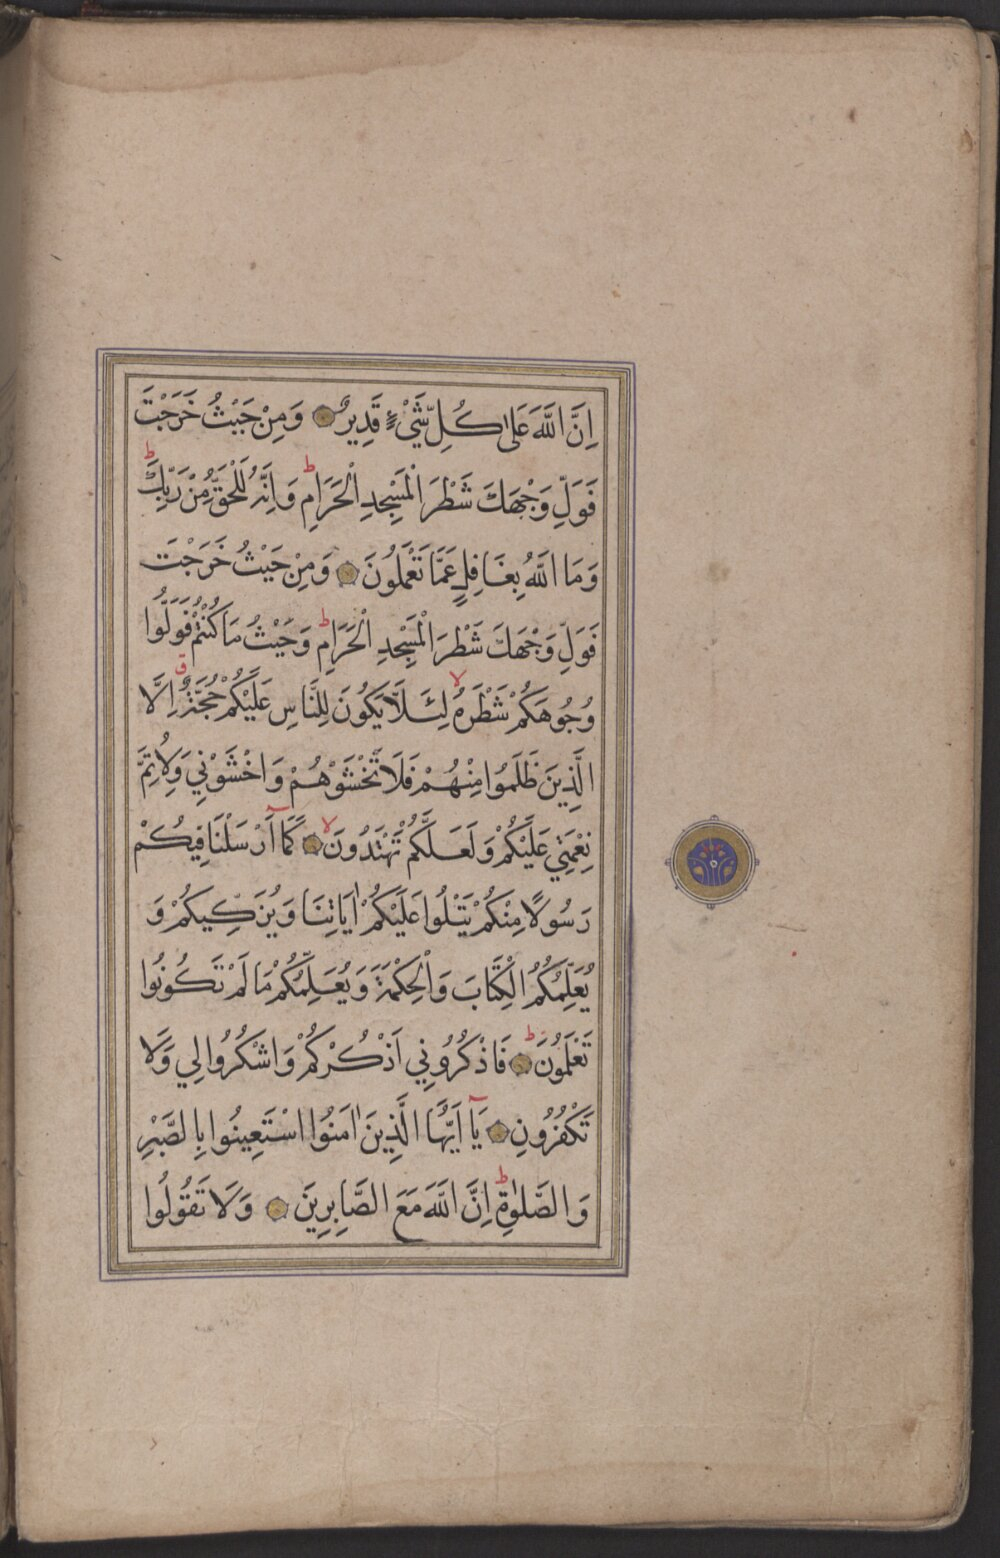 اِنَّ اللَّهَ عَلٰى كُلِّ شَيْءٍ قَدِيرٌ وَمِنْ حَيْثُ خَرَجْتَ
فَوَلِّ وَجْهَكَ شَطْرَ الْمَسْجِدِ الْحَرَامِ ط وَاِنَّهُ لَلْحَقُّ مِنْ رَبِّكَ ط
وَمَا اللَّهُ بِغَافِلٍ عَمَّا تَعْمَلُونَ وَمِنْ حَيْثُ خَرَجْتَ
فَوَلِّ وَجْهَكَ شَطْرَ الْمَسْجِدِ الْحَرَامِ ط وَحَيْثُ مَا كُنْتُمْ فَوَلُّوا
وُجُوهَكُمْ شَطْرَهُ لا لِئَلَّا يَكُونَ لِلنَّاسِ عَلَيْكُمْ حُجَّةٌ ق اِلَّا
الَّذِينَ ظَلَمُوا مِنْهُمْ فَلَا تَخْشَوْهُمْ وَاخْشَوْنِي وَلِاُتِمَّ
نِعْمَتِي عَلَيْكُمْ وَلَعَلَّكُمْ تَهْتَدُونَ لا كَمَٓا اَرْسَلْنَا فِيكُمْ
رَسُولًا مِنْكُمْ يَتْلُوا عَلَيْكُمْ اٰيَاتِنَا وَيُزَكِّيكُمْ وَ
يُعَلِّمُكُمُ الْكِتَابَ وَالْحِكْمَةَ وَيُعَلِّمُكُمْ مَا لَمْ تَكُونُوا
تَعْلَمُونَ ط فَاذْكُرُونِي اَذْكُرْكُمْ وَاشْكُرُوا لِي وَلَا
تَكْفُرُونِ يَٓا اَيُّهَا الَّذِينَ اٰمَنُوا اسْتَعِينُوا بِالصَّبْرِ
وَالصَّلٰوةِ ط اِنَّ اللَّهَ مَعَ الصَّابِرِينَ وَلَا تَقُولُوا